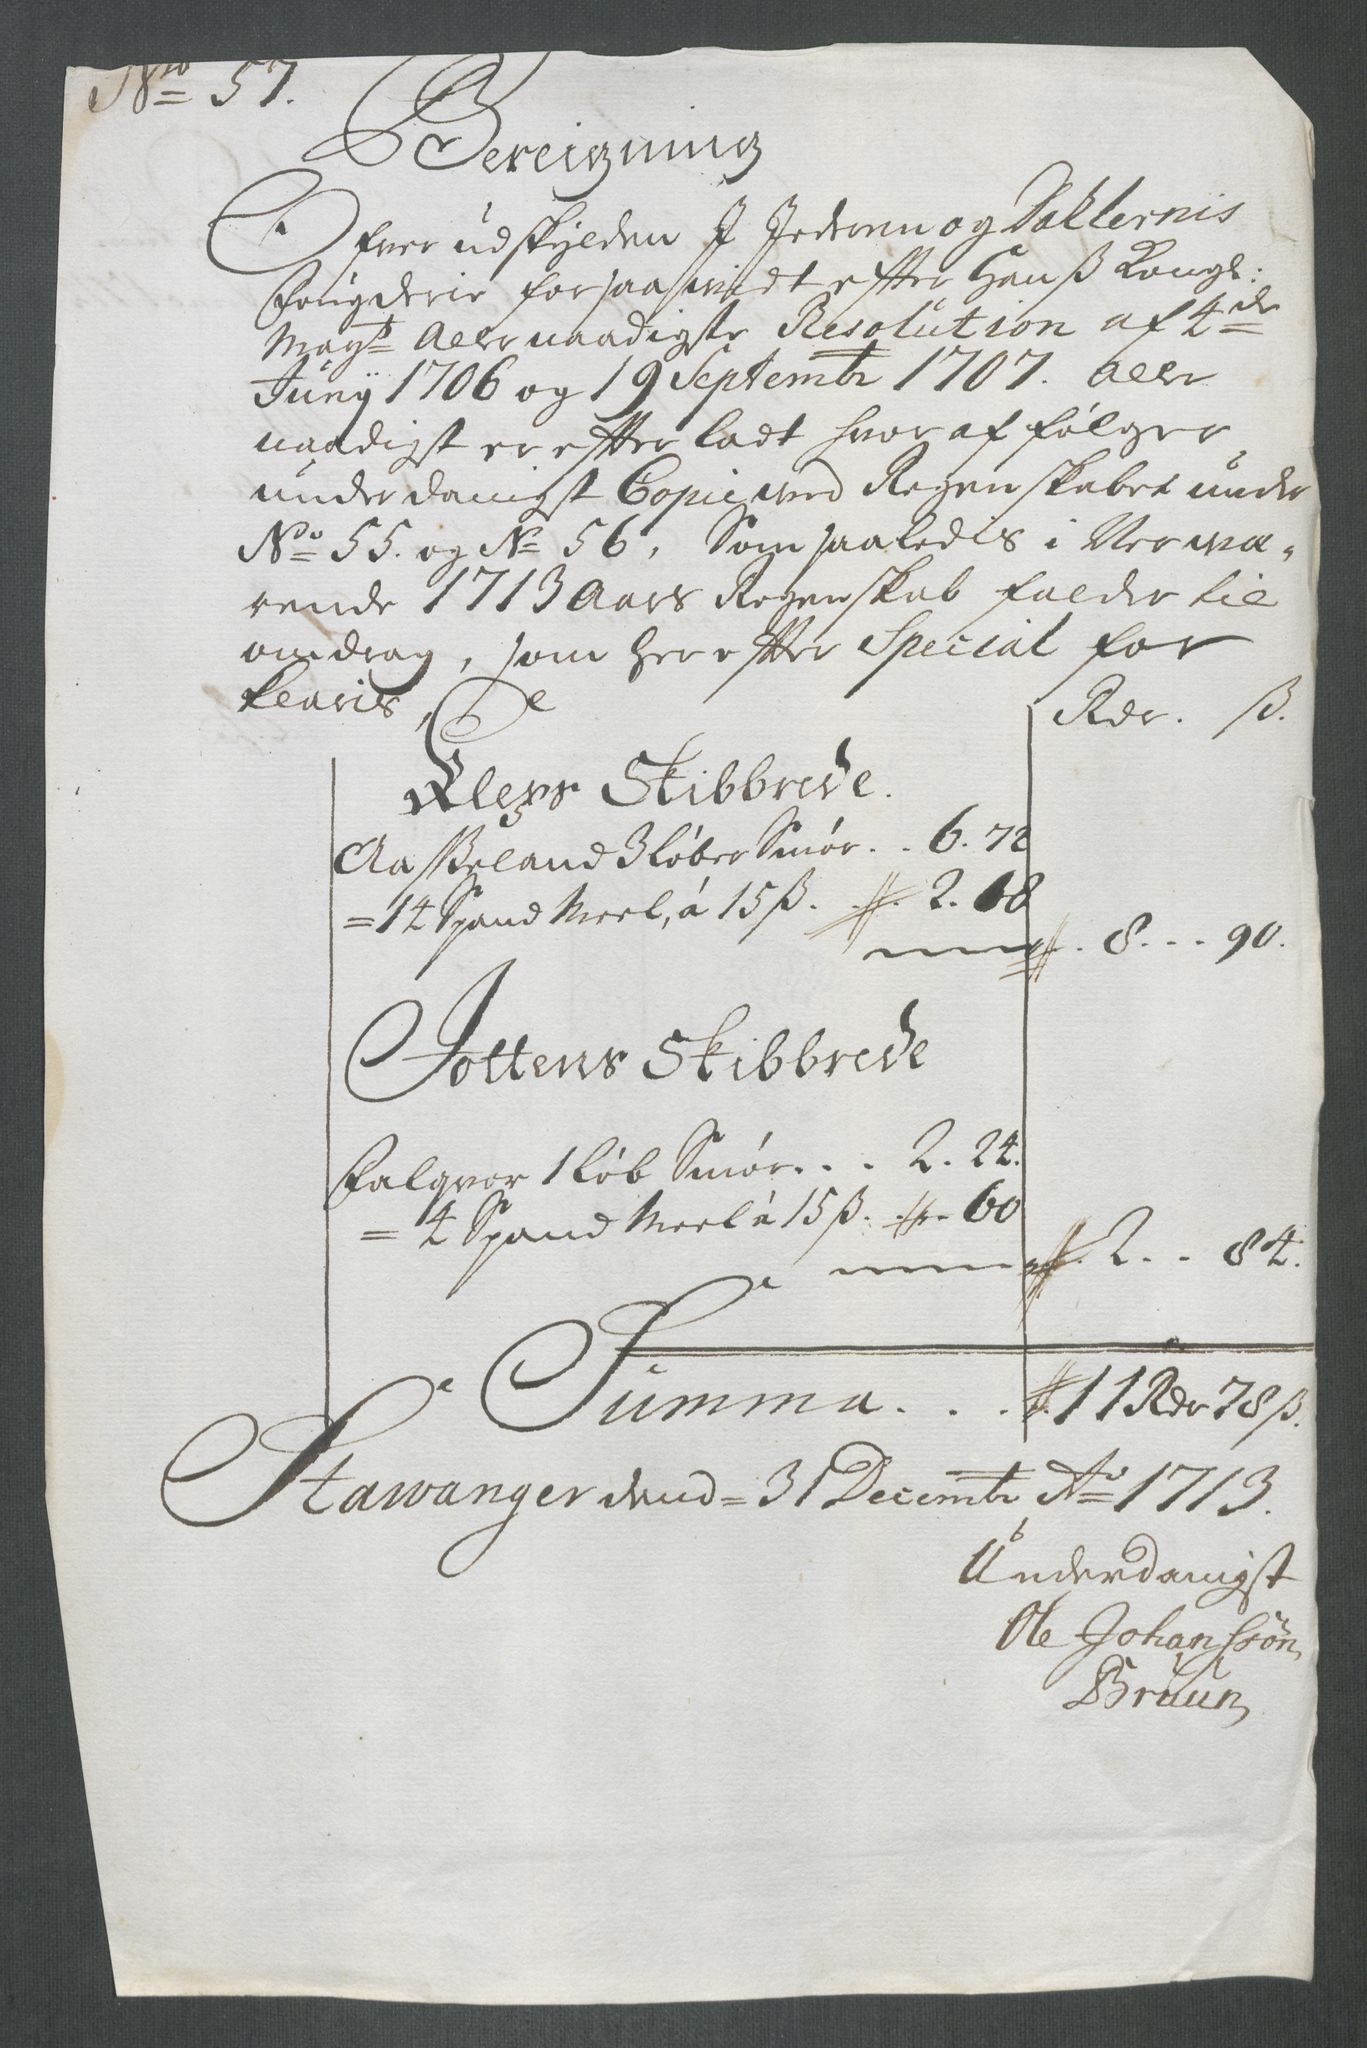 No 57.
Bereigning
Ofver udskylden J Jederen og Dahlernis
fougderie forsaawidt efter Hans Kongl:
Mayts allernaadigste Resolution af 4de
Junÿ 1706 og 19 Septembr 1707. aller
naadigst er efterladt hvor af følger
underdanigst Copie ved Regenskabet under
No 55. og No 56, Som saaledis i Nerwæ-
rende 1713 Aars Regenskab falder til
omdrag, som her efter Special for
klaris,
Rdr. ß.
Kleps Skibbrede.
Aasheland 3 løber Smør . . 6. 72
= 14 Spand Meel, a 15 ß. . 2. 18
8 . . . 90.
Jottens Skibbrede
Falqvor 1 løb Smør . . . 2. 24.
= 4 Spand Meel a 15 ß. . 60
2 . . 84.
Summa . . . 11 Rdr 78 ß.
Stawanger dend = 31 Decembr Ao 1713.
Underdanigst
Ole Johanssøn
Bruun